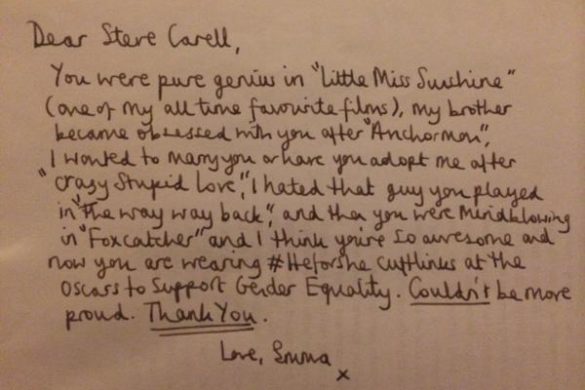 Dear Steve Carell,
You were pure genius in "Little Miss Sunshine"
(one of my all time favourite films), my brother
became obsessed with you after "Anchorman",
I wanted to marry you or have you adopt me after
"Crazy Stupid Love", I hated that guy you played
in "The way way back", and then you were Mindblowing
in "Foxcatcher" and I think you're so awesome and
now you are wearing #Heforshe cufflinks at the
Oscars to support Gender Equality. Couldn't be more
proud. Thank You.
Love, Emma
x